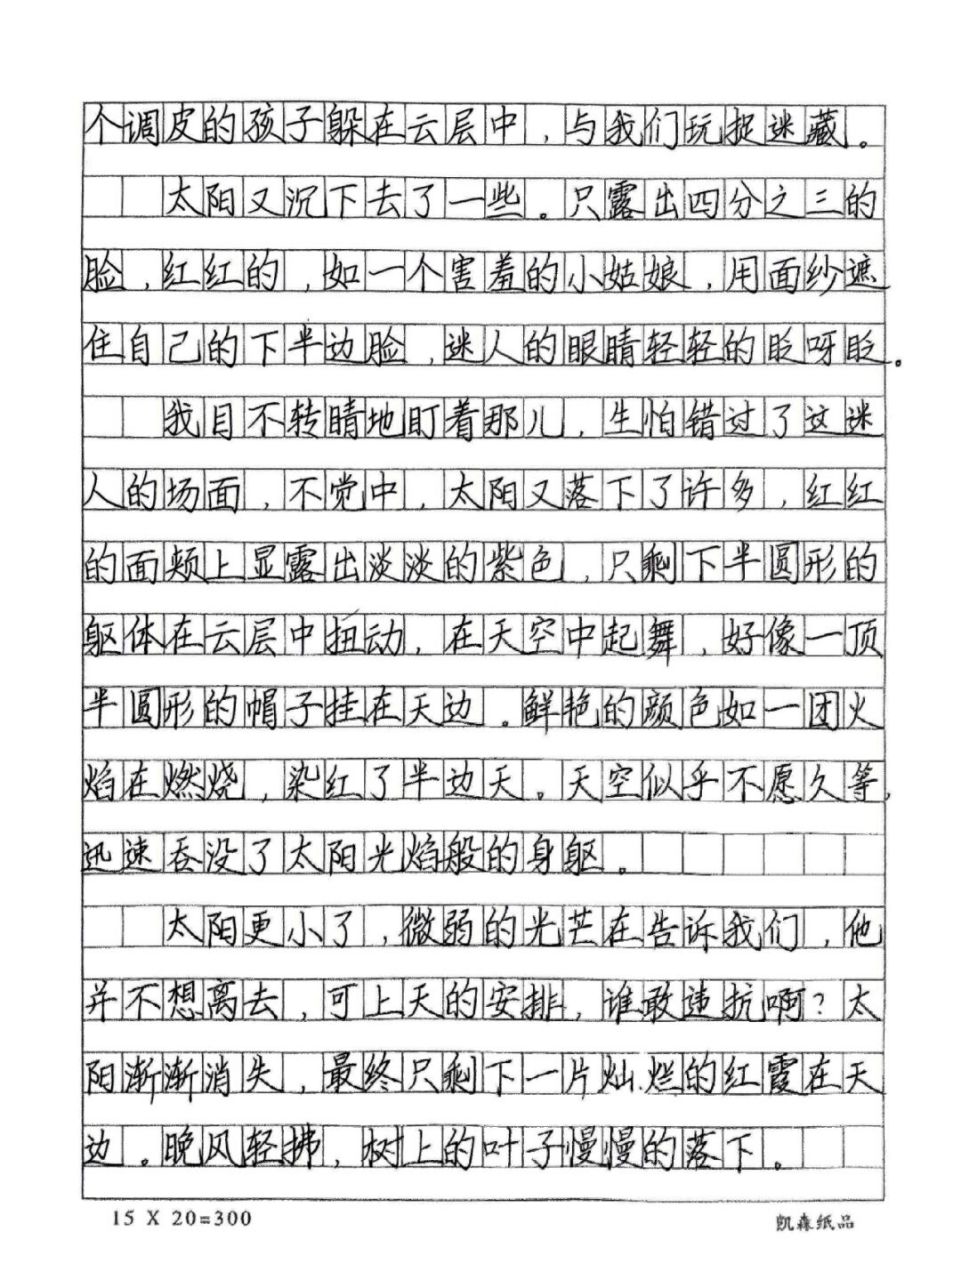 个调皮的孩子躲在云层中,与我们玩捉迷藏。
太阳又沉下去了一些。只露出四分之三的
脸,红红的,如一个害羞的小姑娘,用面纱遮
住自己的下半边脸,迷人的眼睛轻轻的眨呀眨。
我目不转睛地盯着那儿,生怕错过了这迷
人的场面,不觉中,太阳又落下了许多,红红
的面颊上显露出淡淡的紫色,只剩下半圆形的
躯体在云层中扭动,在天空中起舞,好像一顶
半圆形的帽子挂在天边。鲜艳的颜色如一团火
焰在燃烧,染红了半边天。天空似乎不愿久等,
迅速吞没了太阳光焰般的身躯。
太阳更小了,微弱的光芒在告诉我们,他
并不想离去,可上天的安排,谁敢违抗啊?太
阳渐渐消失,最终只剩下一片灿烂的红霞在天
边。晚风轻拂,树上的叶子慢慢的落下。
15 X 20=300 凯森纸品